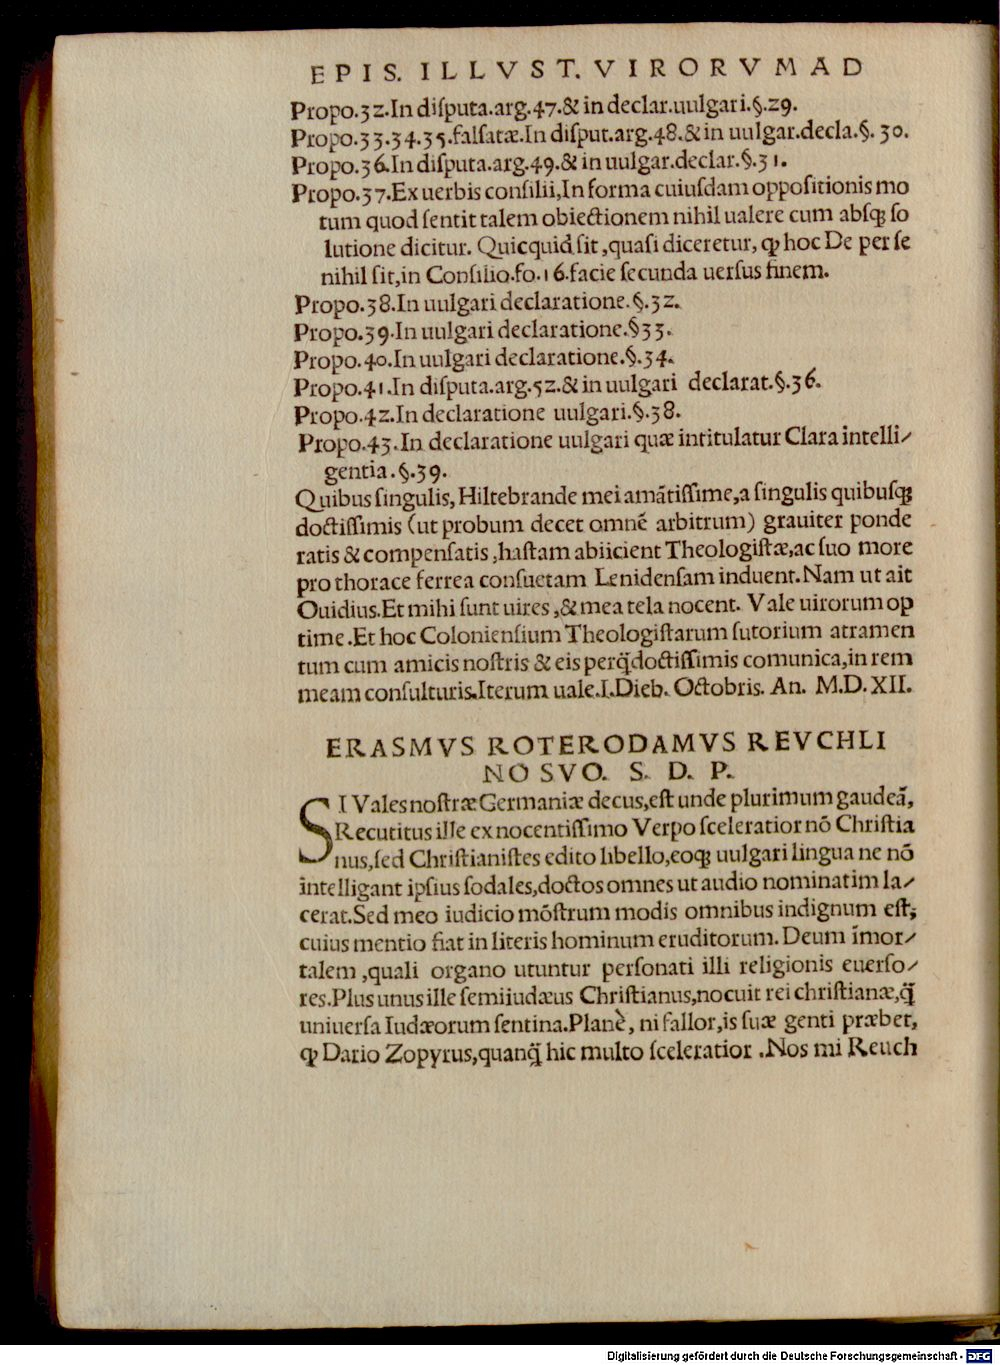 EPIS. ILLVST. VIRORVM AD
Propo.32.In diſputa.arg.47.& in declar.uulgari.§.29.
Propo.33.34.35.falſatæ.In diſput.arg.48.& in uulgar.decla.§. 30.
Propo.36.In diſputa.arg.49.& in uulgar.declar.§.31.
Propo.37.Ex uerbis conſilii,In forma cuiuſdam oppoſitionis mo
tum quod ſentit talem obiectionem nihil ualere cum abſqꝫ ſo
lutione dicitur. Quicquid ſit,quaſi diceretur, ꝙ hoc De per ſe
nihil ſit,in Conſilio.fo.16.facie ſecunda uerſus finem.
Propo.38.In uulgari declaratione.§.32.
Propo.39.In uulgari declaratione.§33.
Propo.40.In uulgari declaratione.§.34.
Propo.41.In diſputa.arg.52.& in uulgari declarat.§.36.
Propo.42.In declaratione uulgari.§.38.
Propo.43.In declaratione uulgari quæ intitulatur Clara intelli/
gentia.§.39.
Quibus ſingulis, Hiltebrande mei amãtiſſime,a ſingulis quibuſqꝫ
doctiſſimis (ut probum decet omnẽ arbitrum) grauiter ponde
ratis & compenſatis,haſtam abiicient Theologiſtæ,ac ſuo more
pro thorace ferrea conſuetam Lenidenſam induent.Nam ut ait
Ouidius.Et mihi ſunt uires,& mea tela nocent. Vale uirorum op
time.Et hoc Colonienſium Theologiſtarum ſutorium atramen
tum cum amicis noſtris & eis perq̃doctiſſimis comunica,in rem
meam conſulturis.Iterum uale.I.Dieb. Octobris. An. M.D.XII.
ERASMVS ROTERODAMVS REVCHLI
NO SVO. S. D. P.
SI Vales noſtræ Germaniæ decus,eſt unde plurimum gaudeã,
Recutitus ille ex nocentiſſimo Verpo ſceleratior nõ Chriſtia
nus,ſed Chriſtianiſtes edito libello,eoqꝫ uulgari lingua ne nõ
intelligant ipſius ſodales,doctos omnes ut audio nominatim la/
cerat.Sed meo iudicio mõſtrum modis omnibus indignum eſt;
cuius mentio fiat in literis hominum eruditorum.Deum ĩmor/
talem,quali organo utuntur perſonati illi religionis euerſo/
res.Plus unus ille ſemiiudæus Chriſtianus,nocuit rei chriſtianæ,q̃
uniuerſa Iudæorum ſentina.Planè, ni fallor,is ſuæ genti præbet,
ꝙ Dario Zopyrus,quanq̃ hic multo ſceleratior .Nos mi Reuch
Digitalisierung gefördert durch die Deutsche Forschungsgemeinschaft - DFG